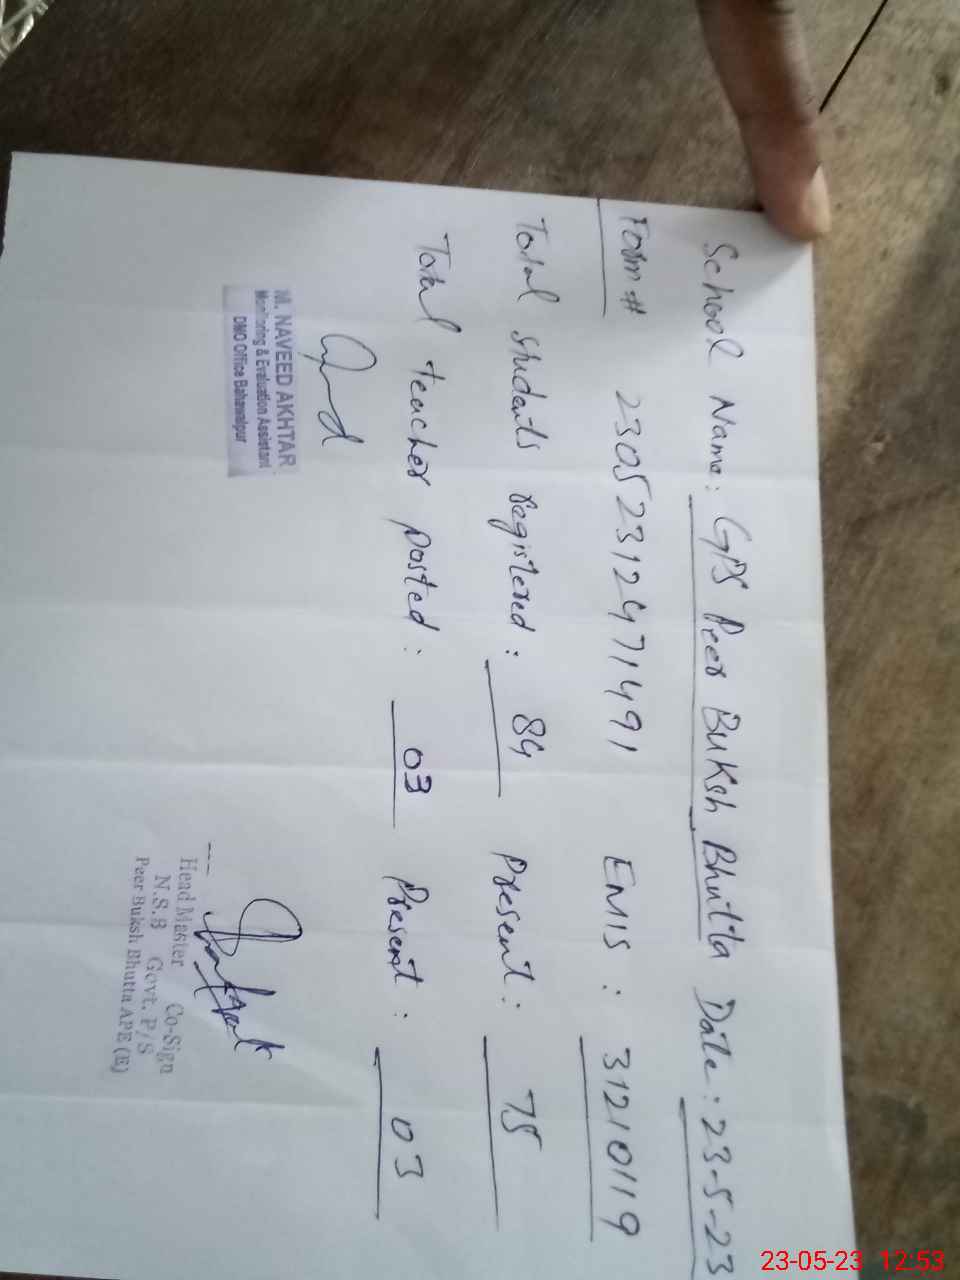 School Name: GPS Peer Buksh Bhutta Date: 23-5-23
Form # 2305231247 1491 EMIS: 31210119
Total students registered: 84 Present: 75
Total teacher posted: 03 Present: 03
M. NAVEED AKHTAR
Monitoring & Evaluation Assistant
DMO Office Bahawalpur
Head Master Co-Sign
N.S.B Govt. P/S
Peer Buksh Bhutta APE (E)
23-05-23 12:53